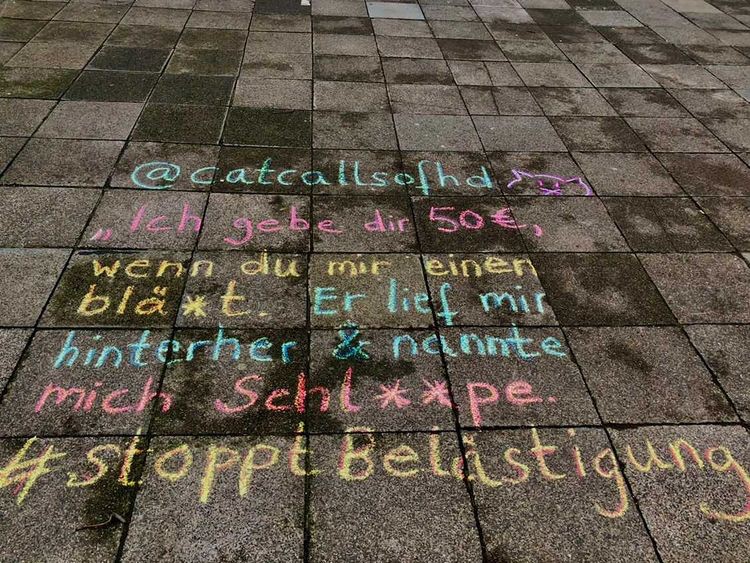 @catcallsofhd
„Ich gebe dir 50€,
wenn du mir einen
blä*t. Er lief mir
hinterher & nannte
mich Schl**pe.
#stopptBelästigung